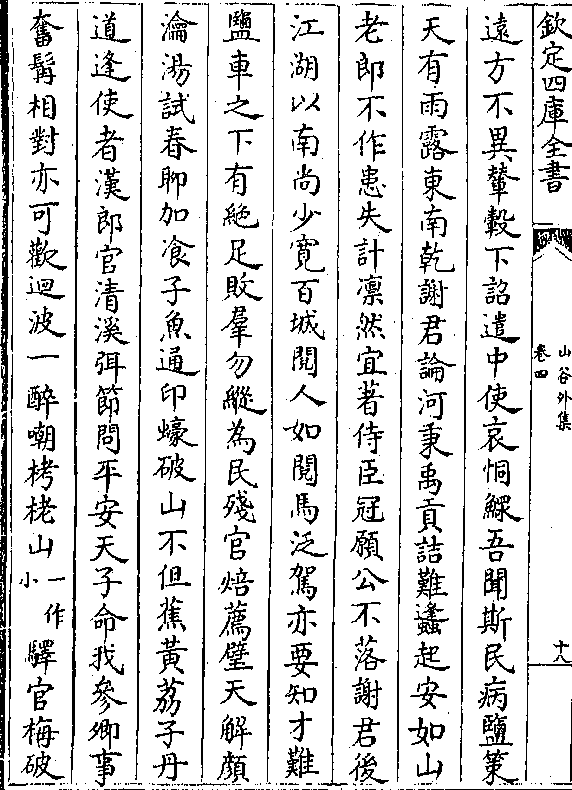 欽定四庫全書
山谷外集
卷四
十八
遠方不異輦轂下詔遣中使哀恫鰥吾聞斯民病鹽策
天有雨露東南乾謝君論河秉禹貢詰難蠭起安如山
老郎不作患失計凛然宜著侍臣冠願公不落謝君後
江湖以南尚少寛百城閱人如閱馬泛駕亦要知才難
鹽車之下有絶足敗羣勿縱為民殘官焙薦璧天解顏
瀹湯試春聊加飡子魚通印蠔破山不但蕉黃荔子丹
道逢使者漢郎官清溪弭節問平安天子命我參卿事
奮髯相對亦可歡迴波一醉嘲栲栳山一作小驛官梅破